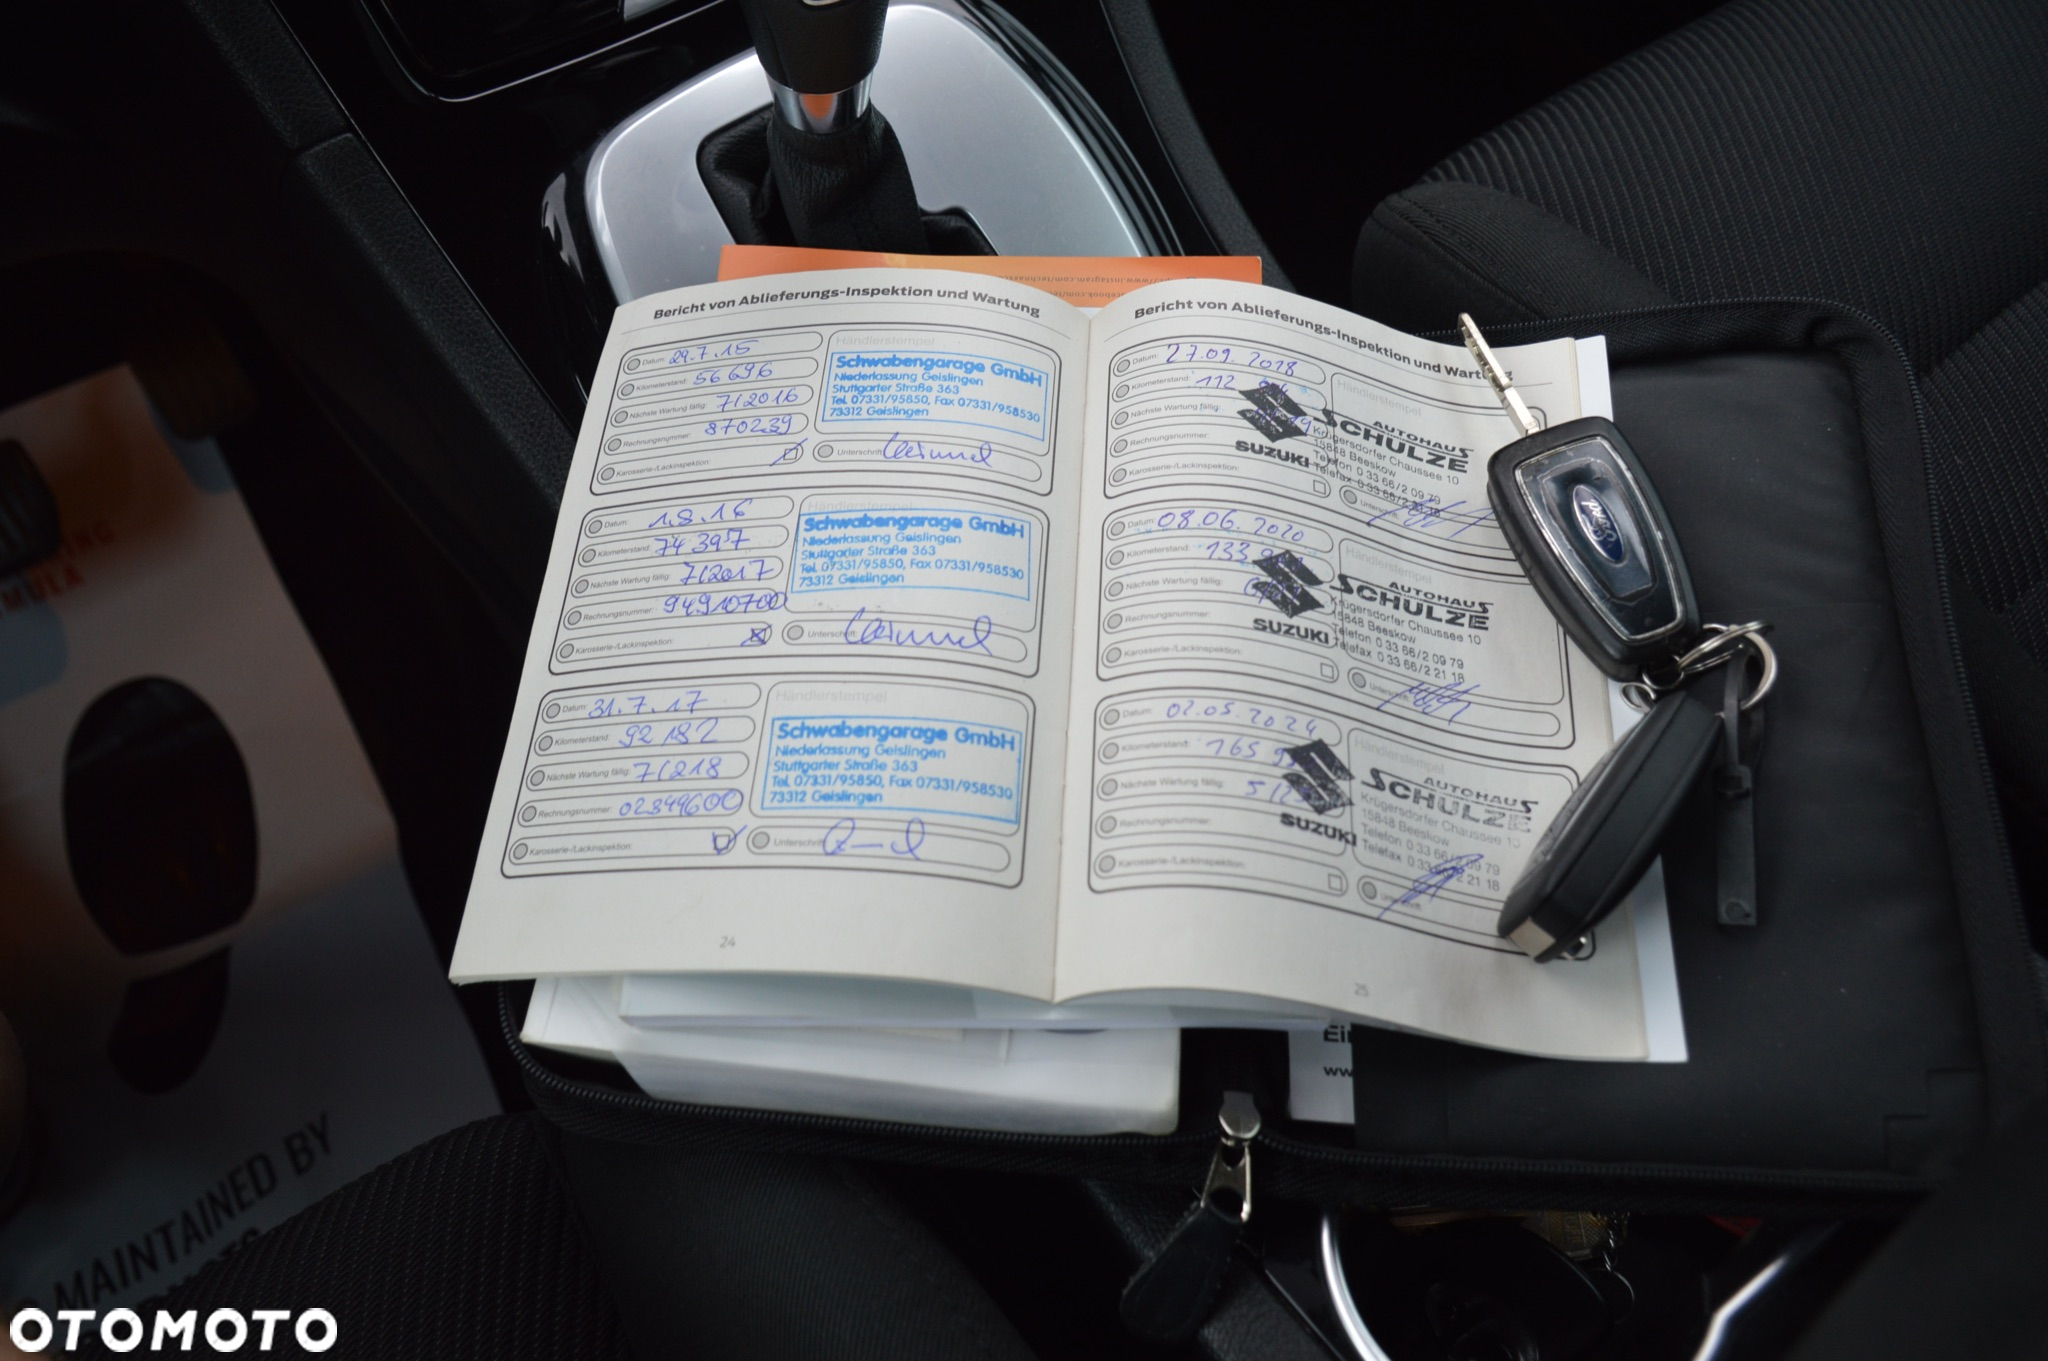 Bericht von Ablieferungs-Inspektion und Wartung
Datum: 29.7.15
Kilometerstand: 56696
Nächste Wartung fällig: 7/2016
Rechnungsnummer: 870239
Karosserie-/Lackinspektion:
Händlerstempel
Schwabengarage GmbH
Niederlassung Geislingen
Stuttgarter Straße 363
Tel. 07331/95850, Fax 07331/958530
73312 Geislingen
Unterschrift:
Datum: 1.8.16
Kilometerstand: 74397
Nächste Wartung fällig: 7/2017
Rechnungsnummer: 94910700
Karosserie-/Lackinspektion:
Händlerstempel
Schwabengarage GmbH
Niederlassung Geislingen
Stuttgarter Straße 363
Tel. 07331/95850, Fax 07331/958530
73312 Geislingen
Unterschrift:
Datum: 31.7.17
Kilometerstand: 92182
Nächste Wartung fällig: 7/218
Rechnungsnummer: 02849600
Karosserie-/Lackinspektion:
Händlerstempel
Schwabengarage GmbH
Niederlassung Geislingen
Stuttgarter Straße 363
Tel. 07331/95850, Fax 07331/958530
73312 Geislingen
Unterschrift:
24
Bericht von Ablieferungs-Inspektion und Wartung
Datum: 27.09.2018
Kilometerstand: 112
Nächste Wartung fällig:
Rechnungsnummer:
Karosserie-/Lackinspektion:
Händlerstempel
SUZUKI
AUTOHAUS
SCHULZE
Krügersdorfer Chaussee 10
15848 Beeskow
Telefon 0 33 66/2 09 79
Telefax 0 33 66/2 21 18
Unterschrift:
Datum: 08.06.2020
Kilometerstand: 133
Nächste Wartung fällig:
Rechnungsnummer:
Karosserie-/Lackinspektion:
Händlerstempel
SUZUKI
AUTOHAUS
SCHULZE
Krügersdorfer Chaussee 10
15848 Beeskow
Telefon 0 33 66/2 09 79
Telefax 0 33 66/2 21 18
Unterschrift:
Datum: 02.05.2024
Kilometerstand: 165
Nächste Wartung fällig:
Rechnungsnummer:
Karosserie-/Lackinspektion:
Händlerstempel
SUZUKI
AUTOHAUS
SCHULZE
Krügersdorfer Chaussee 10
15848 Beeskow
Telefon 0 33 66/2 09 79
Telefax 0 33 66/2 21 18
25
Ford
MAINTAINED BY
OTOMOTO